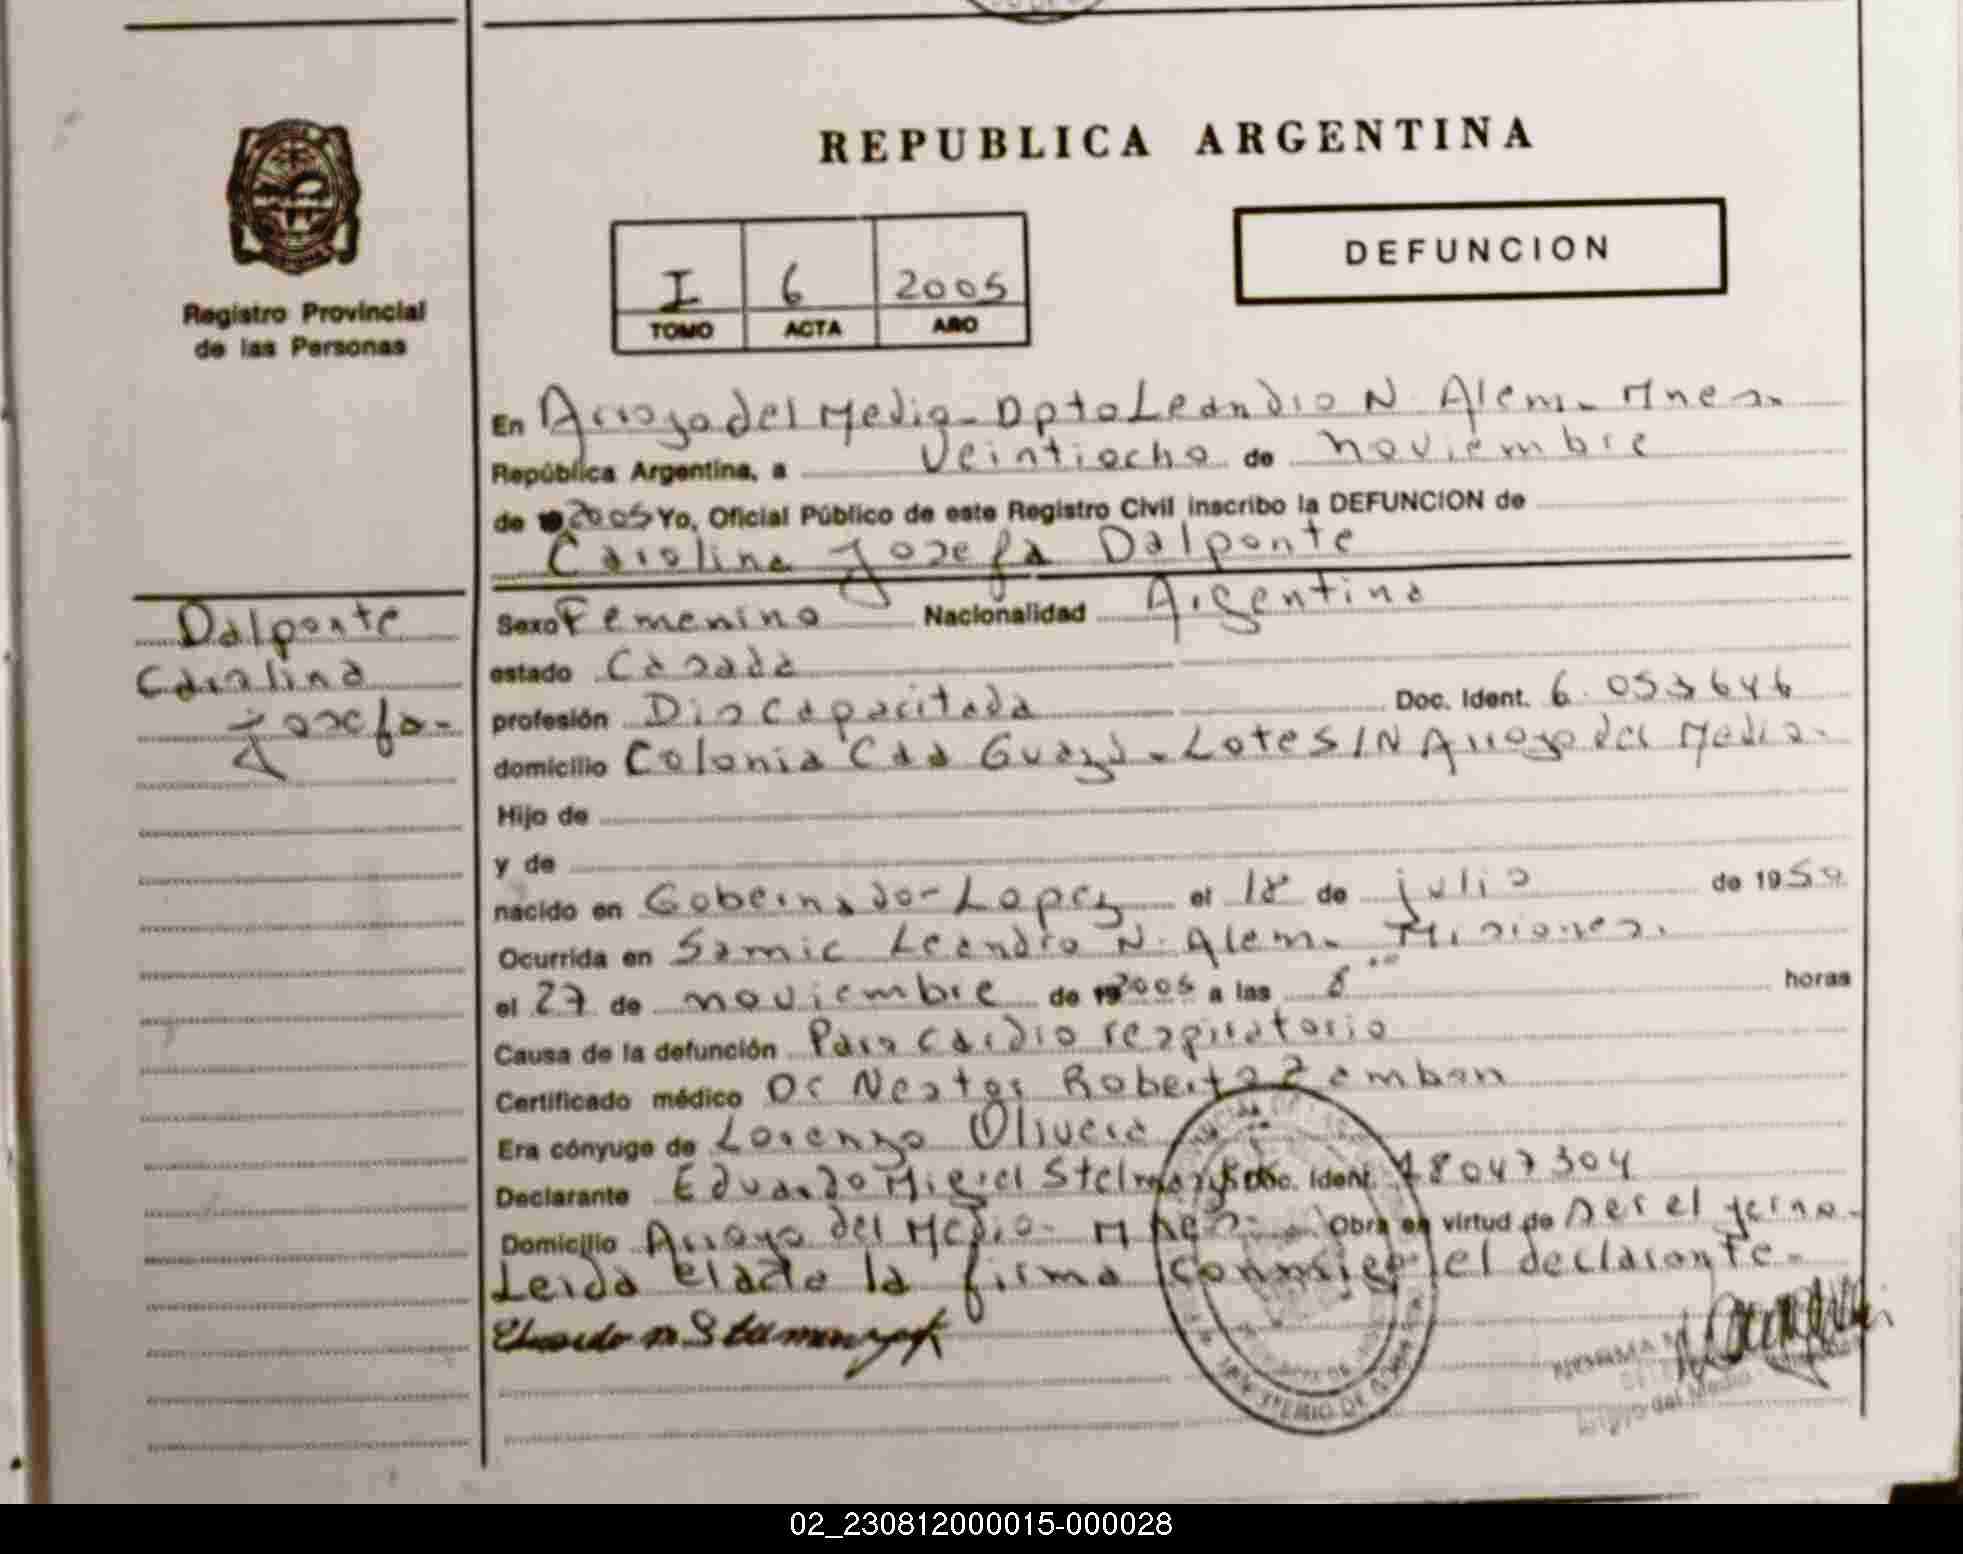 REPUBLICA ARGENTINA
DEFUNCION
Registro Provincial
de las Personas
I 6 2005
TOMO ACTA AÑO
En Arroyo del Medio - Dpto Leandro N. Alem - Mnes.
República Argentina, a Veintiocho de noviembre
de 2005 Yo, Oficial Público de este Registro Civil inscribo la DEFUNCION de
Carolina Josefa Dalponte
Dalponte
Carolina
Josefa-
Sexo Femenino Nacionalidad Argentina
estado Casada
profesión Discapacitada Doc. Ident. 6.053646
domicilio Colonia Caa Guazú - Lote S/N Arroyo del Medio-
Hijo de
y de
nacido en Gobernador Lopez el 18 de julio de 1950
Ocurrida en Samic Leandro N. Alem - Misiones.
el 27 de noviembre de 2005 a las 8 horas
Causa de la defunción Paro Cardio respiratorio
Certificado médico Dr Nestor Roberto Zamban
Era cónyuge de Lorenzo Olivera
Declarante Eduardo Miguel Doc. Ident. 18047304
Domicilio Arroyo del Medio - Mnes- Obra en virtud de ser el yerno-
Leida el acta la firma conmigo el declarante-
MINISTERIO DE GOBIERNO
NORMA
Arroyo del Medio
02_230812000015-000028